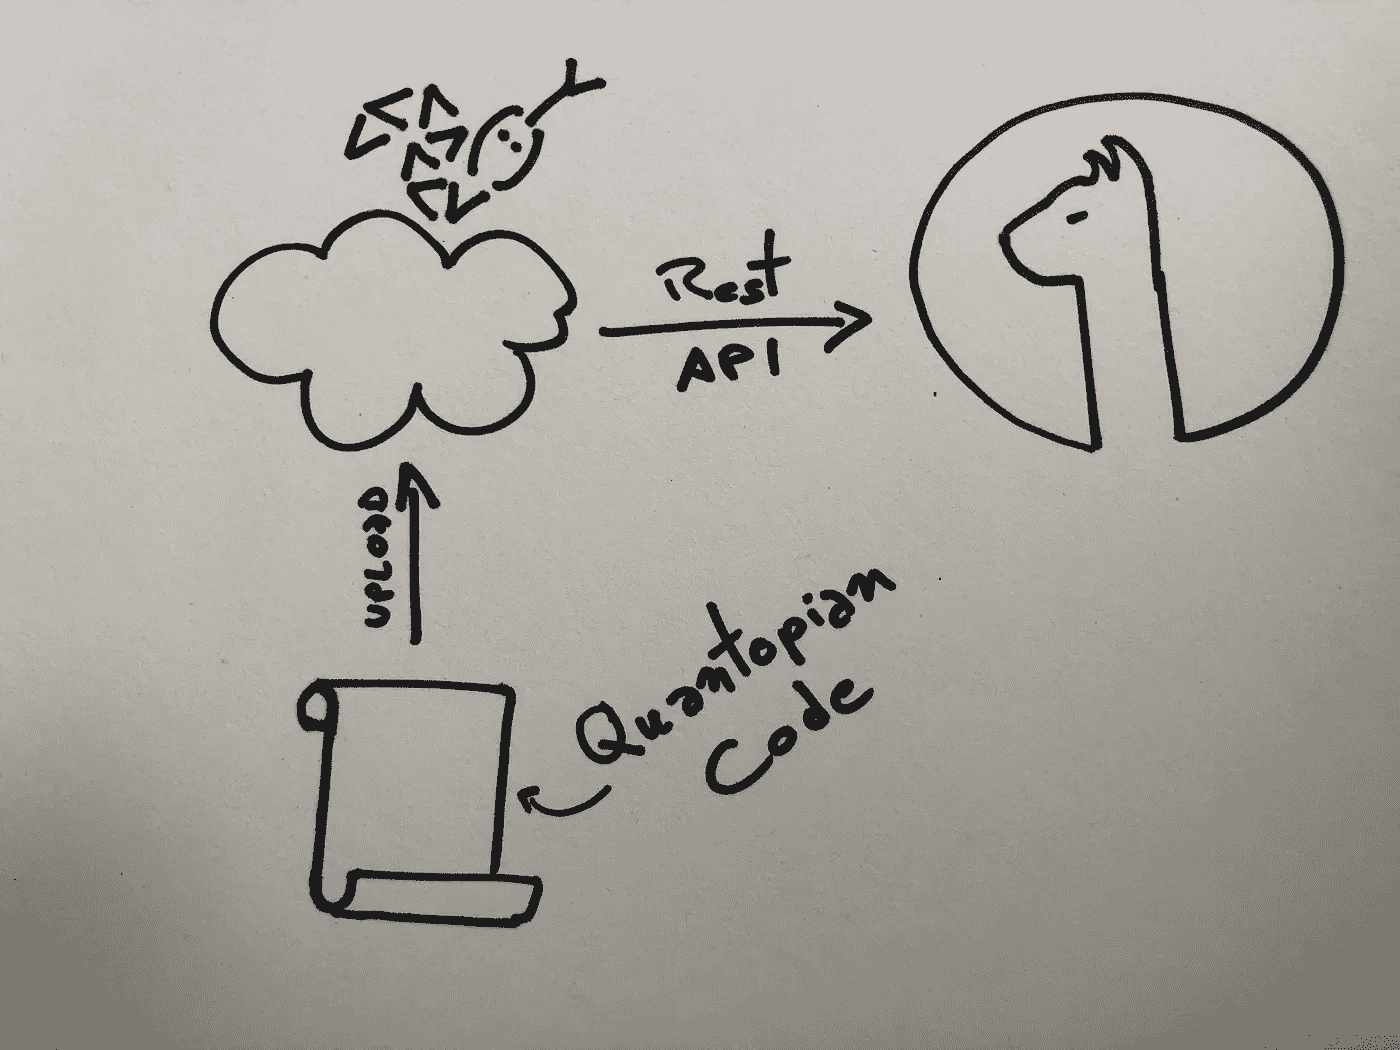 Rest
API
UPLOAD
Quantopian
Code